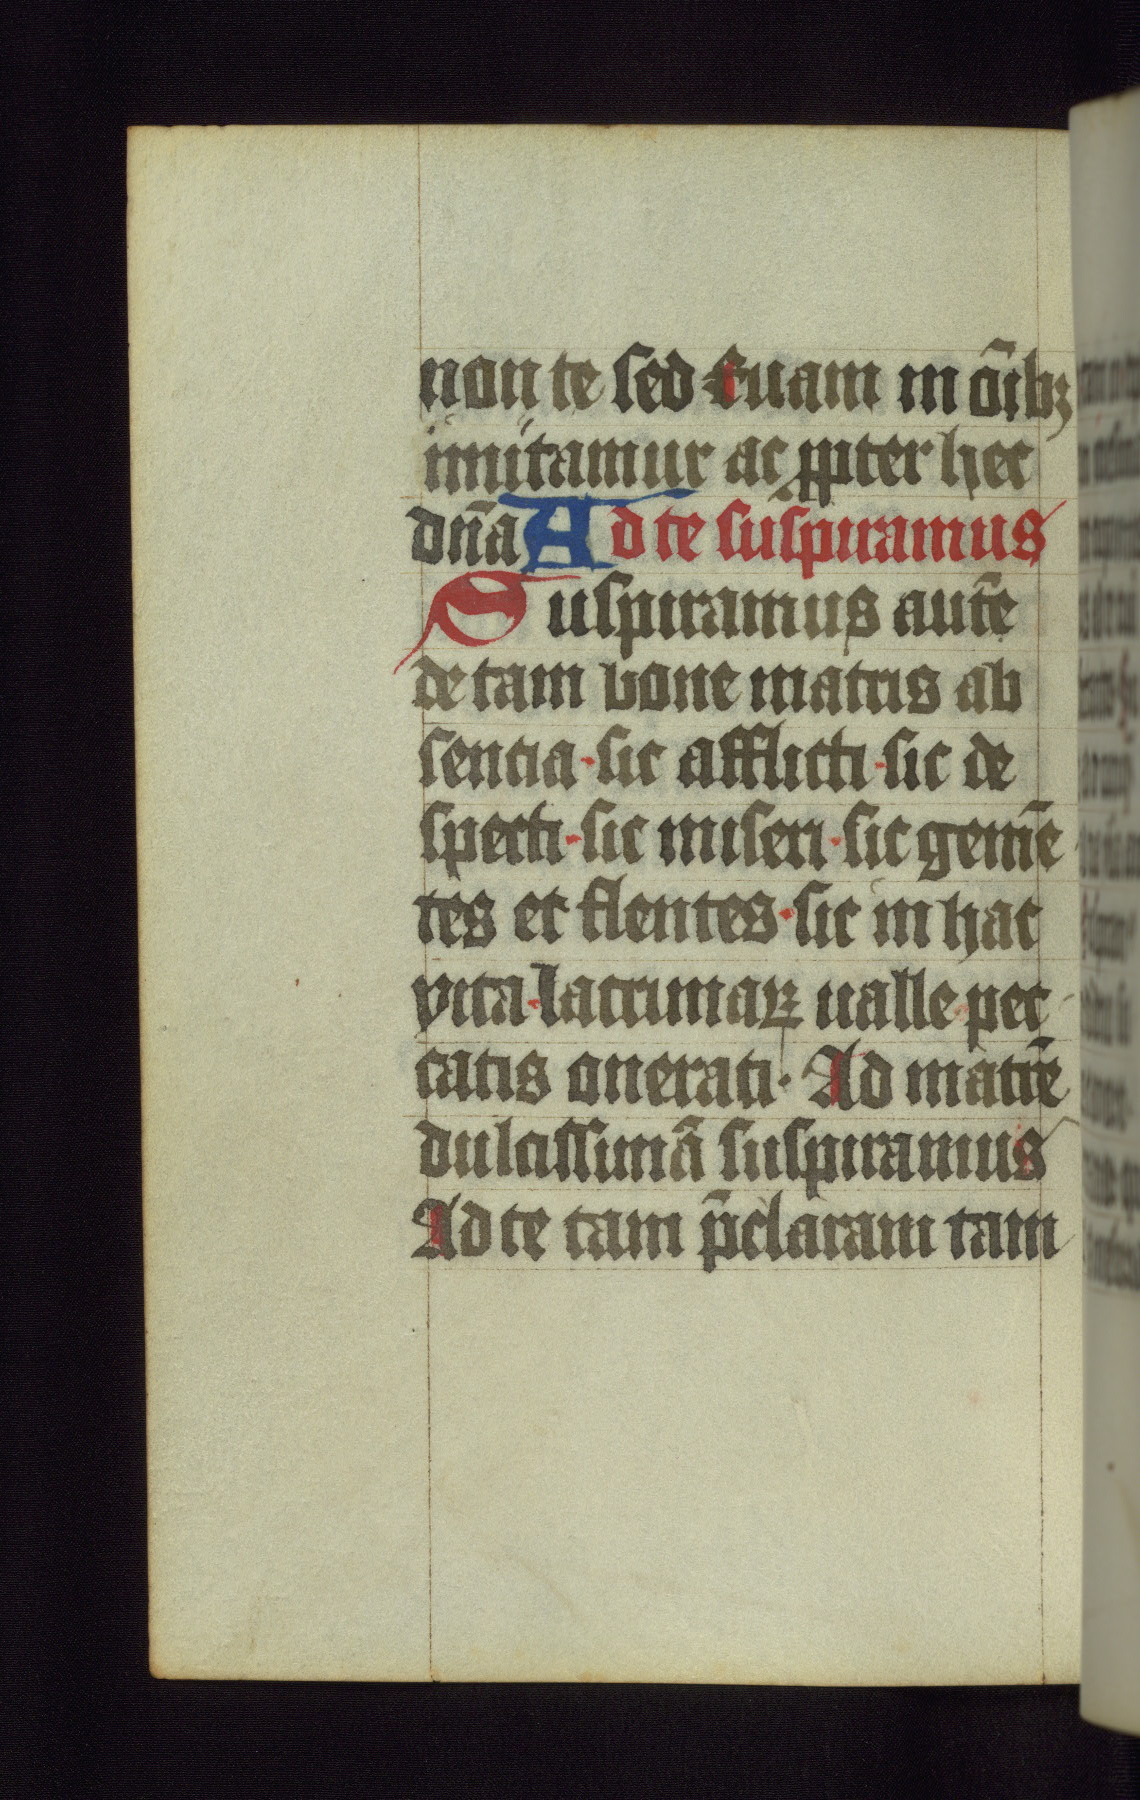 non te sed Euam in oı̄bꝫ
imitamur ac ꝓpter hec
dn̄a Ad te suspiramus
Suspiramus aute̅
de tam bone matris ab
sentia·sic afflicti·sic de
specti·sic miseri·sic geme̅
tes et flentes·sic in hac
vita·lacrimaꝝ ualle pec
catis onerati· Ad matre̅
dulcissima̅ suspiramus
Ad te tam p̄claram tam